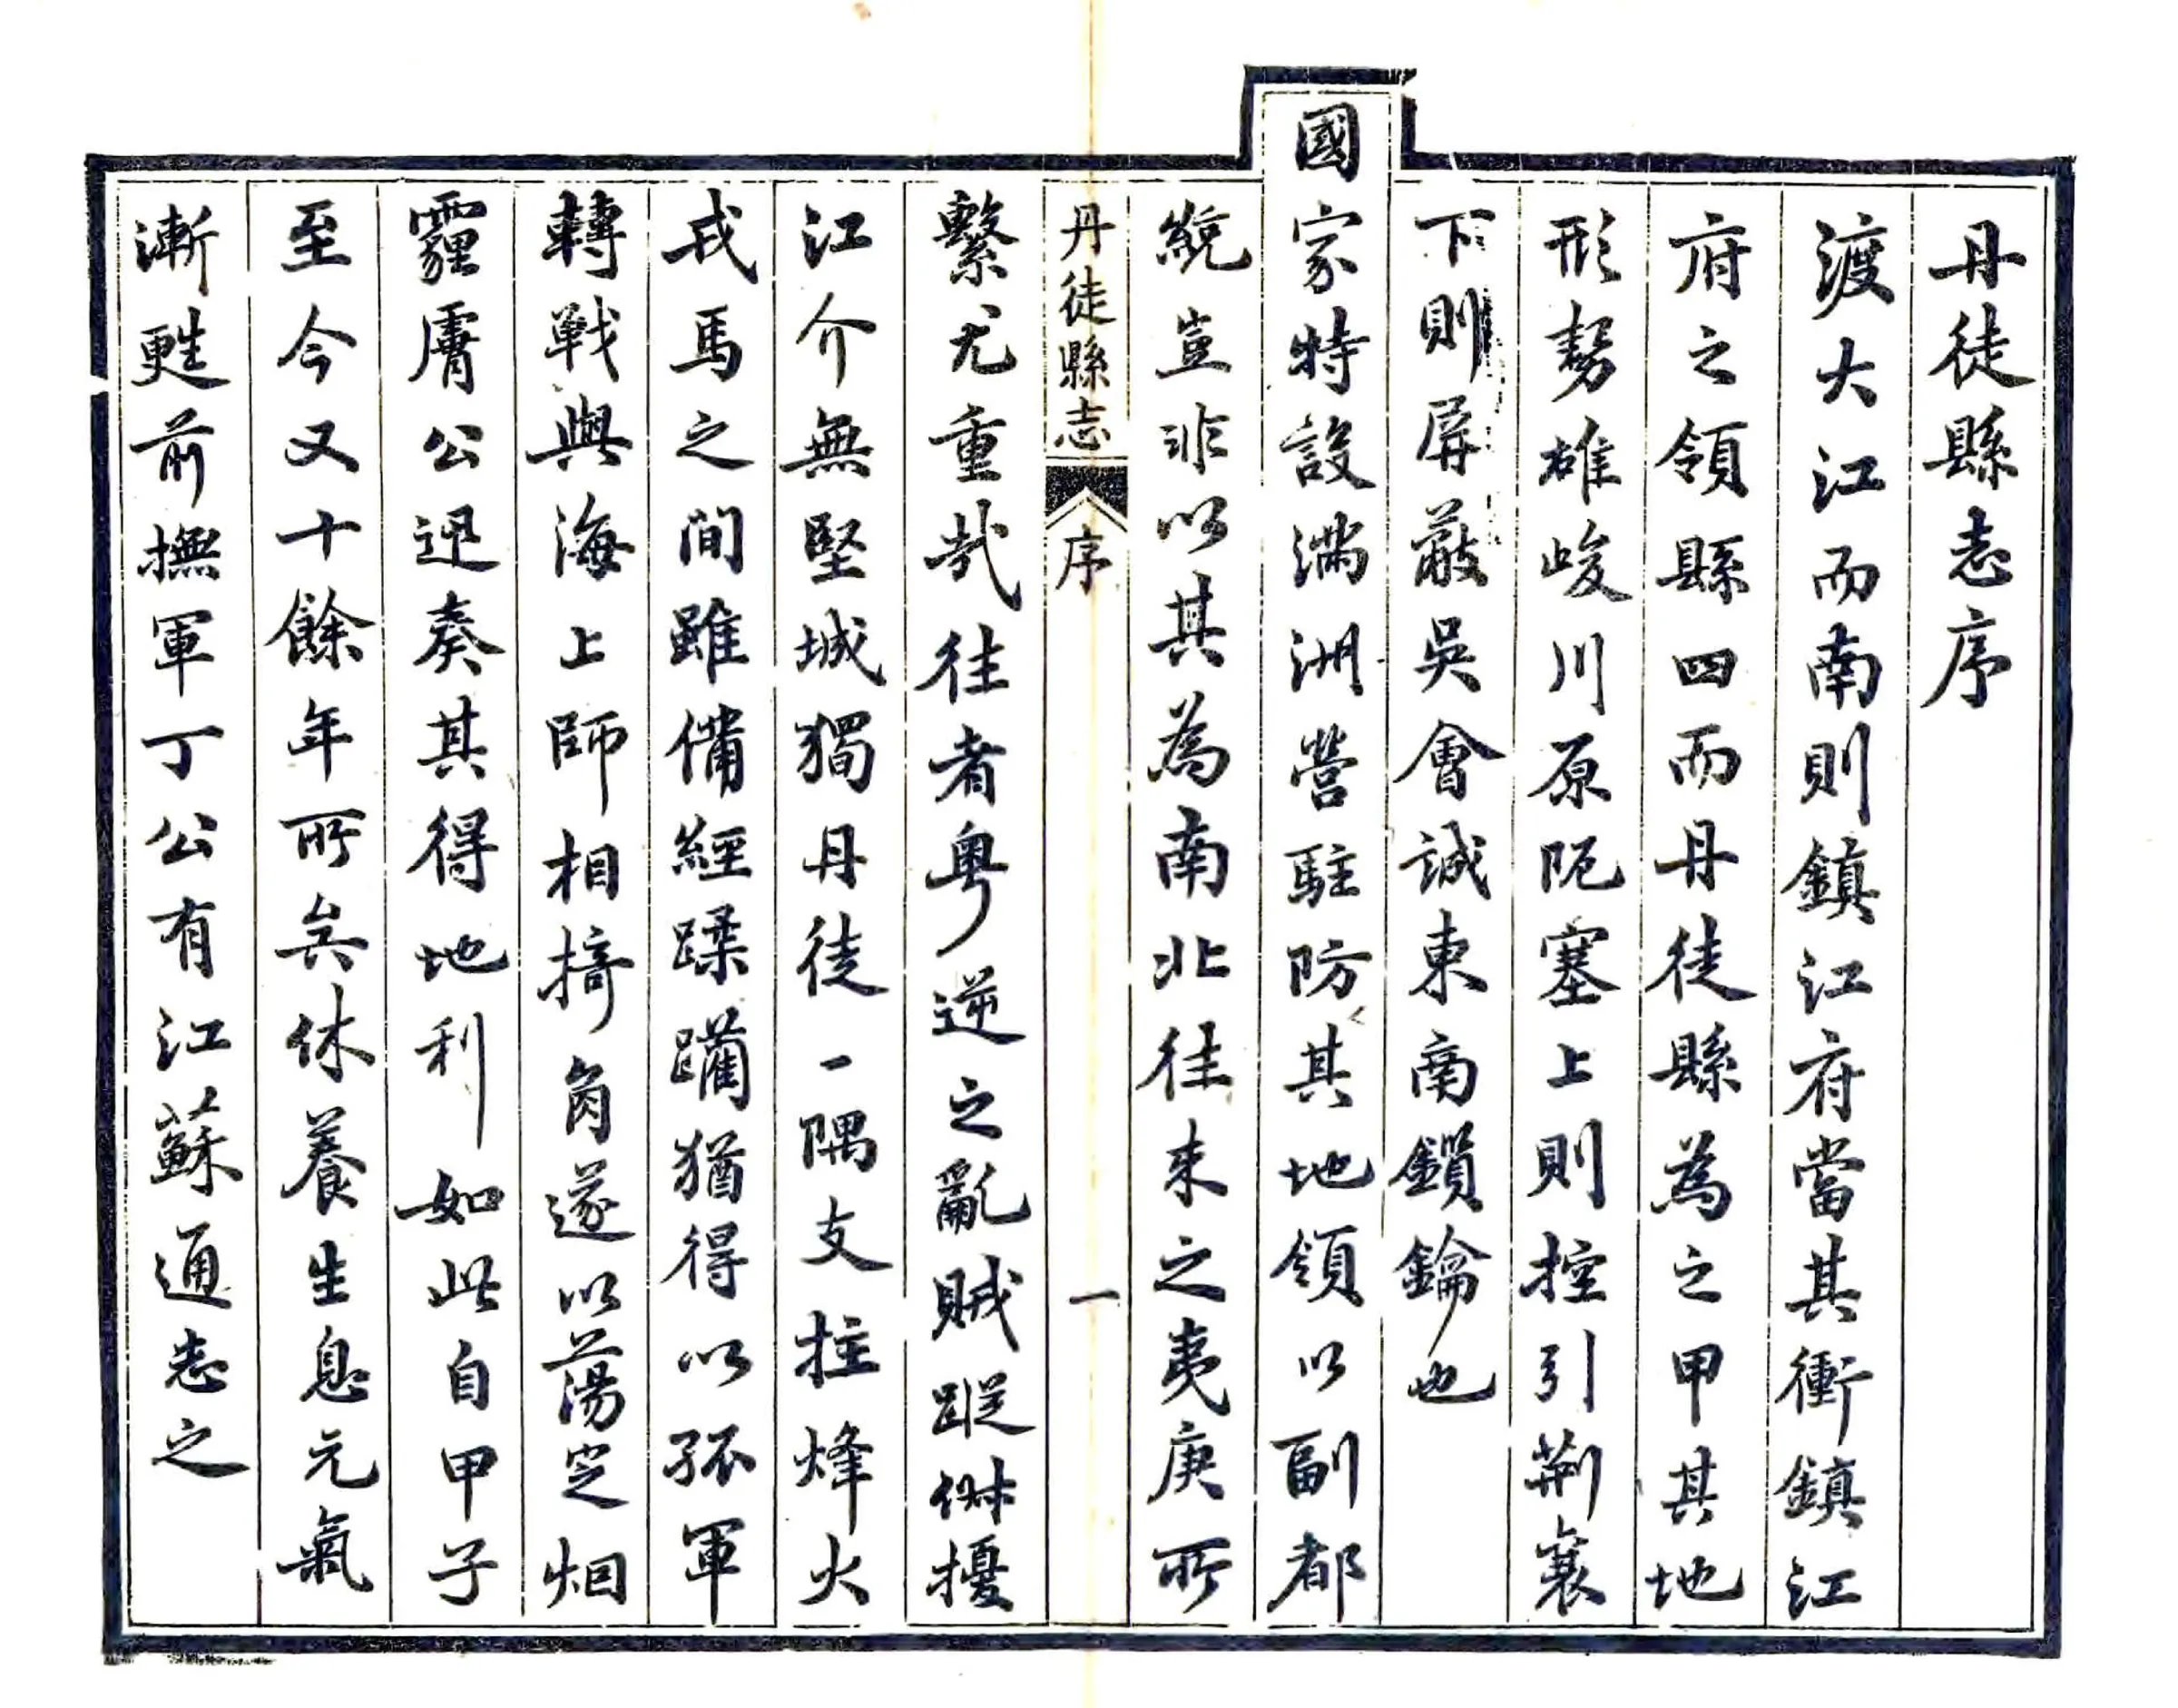 丹徒縣志序
渡大江而南則鎮江府當其衝鎮江
府之領縣四而丹徒縣為之甲其地
形勢雄峻川原阨塞上則控引荊襄
下則屏蔽吳會誠東南鎖鑰也
國家特設滿洲營駐防其地領以副都
統豈非以其為南北往來之夷庚所
丹徒縣志
序
一
繫尤重哉往者粵逆之亂賊蹤俶擾
江介無堅城獨丹徒一隅支拄烽火
戎馬之間雖備經蹂躪猶得以孤軍
轉戰與海上師相掎角遂以蕩定烟
霾膚公迅奏其得地利如此自甲子
至今又十餘年所矣休養生息元氣
漸甦前撫軍丁公有江蘇通志之